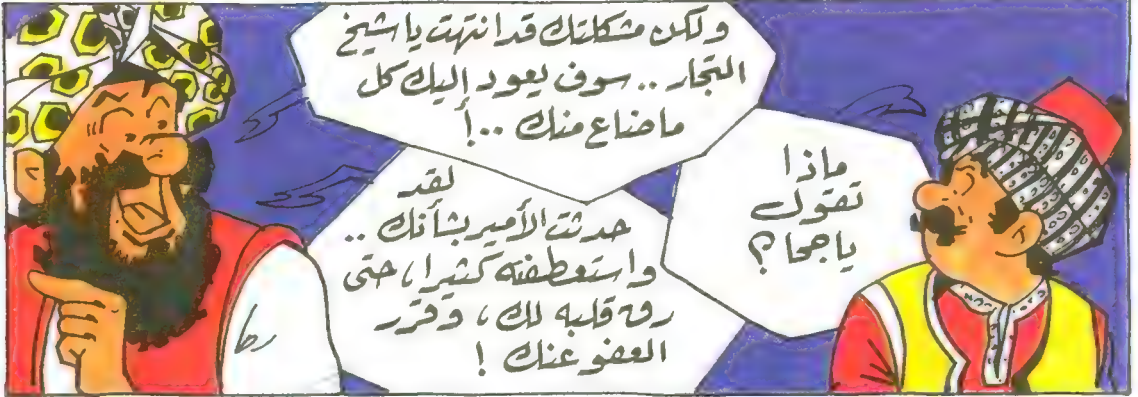 ولكن مشكلتك قد انتهت يا شيخ
التجار .. سوف يعود إليك كل
ما ضاع منك ..!
ماذا
تقول
يا جحا ؟
لقد
حدثت الأمير بشأنك ..
واستعطفته كثيرا ، حتى
رق قلبه لك ، وقرر
العفو عنك !